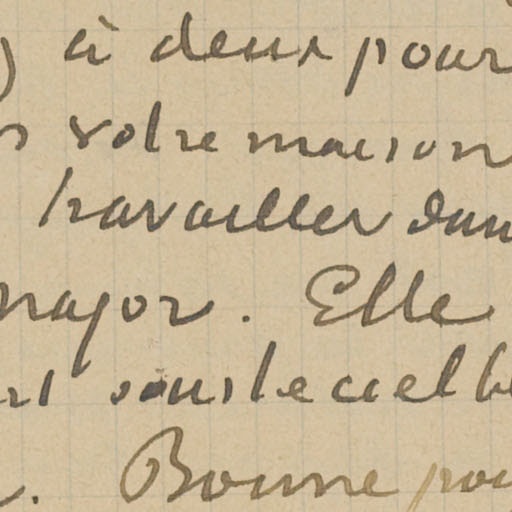 ) à deux pour
votre maison
travailler dans
major. Elle
sous le ciel
. Bonne pou